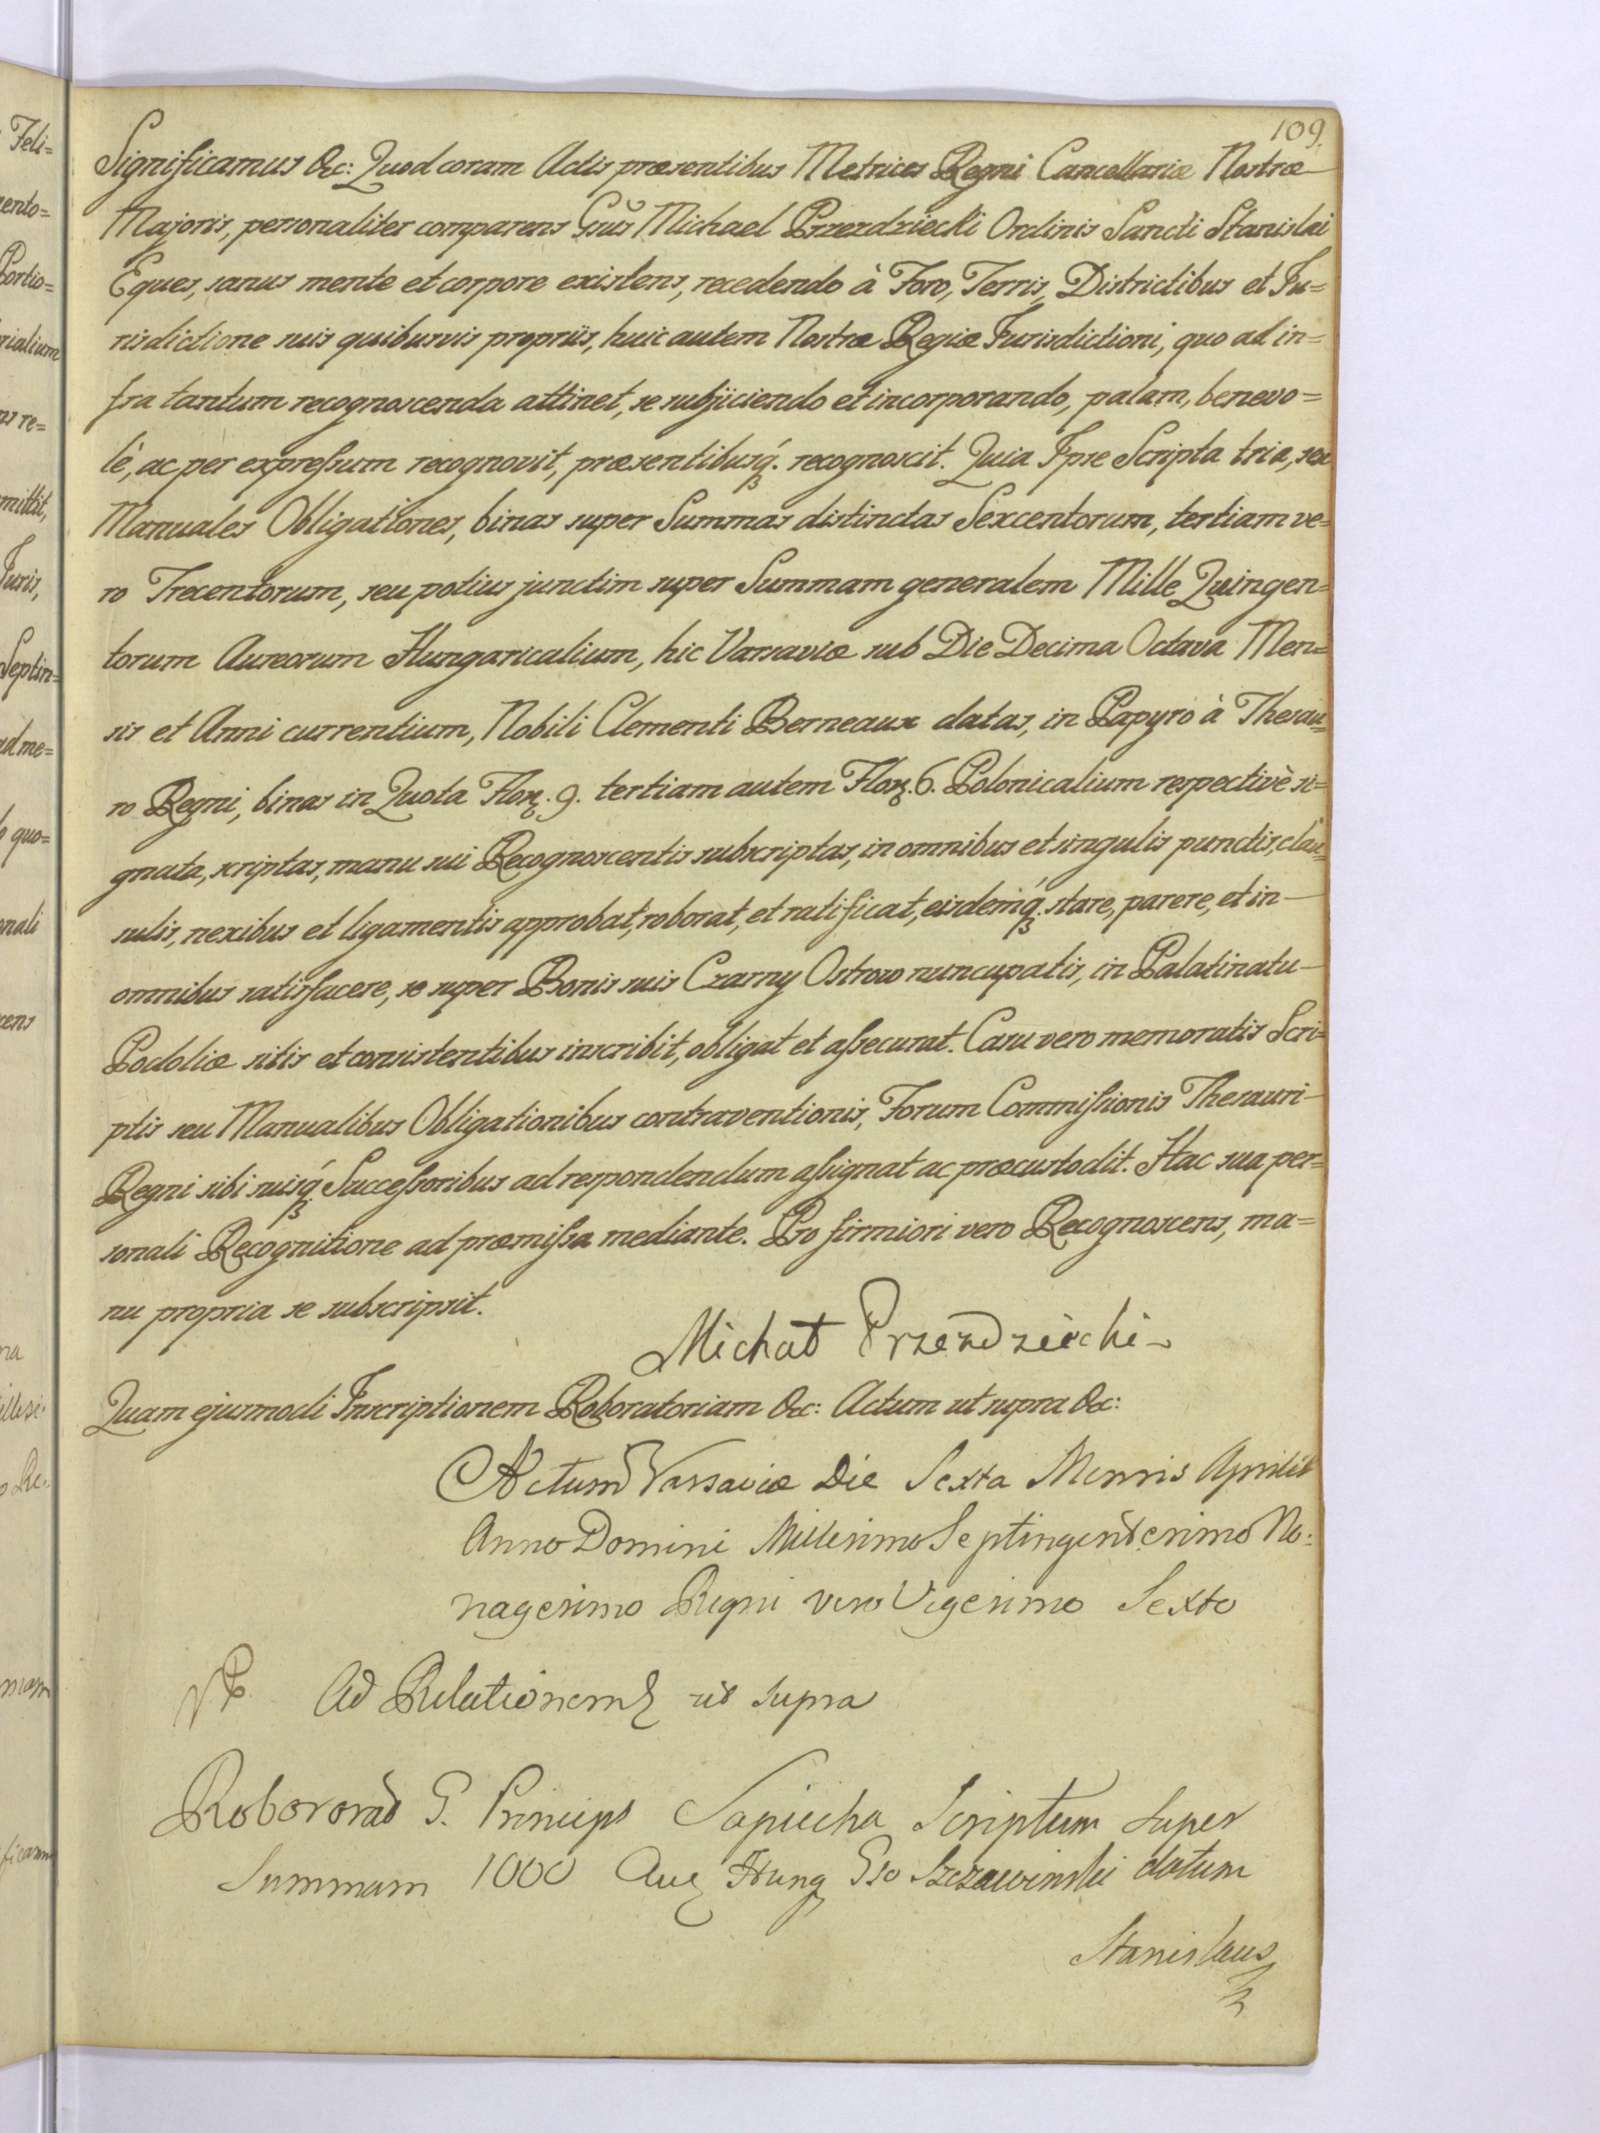 109.
Significamus &c: Quod coram Actis præsentibus Metrices Regni Cancellariæ Nostræ
Majoris, personaliter comparens Gnūs Michael Przezdziecki Ordinis Sancti Stanislai
Eques, sanus mente et corpore existens, recedendo à Foro, Terris, Districtibus et Ju=
risdictione suis quibusvis propriis, huic autem Nostræ Regiæ Jurisdictioni, quo ad in=
fra tantum recognoscenda attinet, se subjiciendo et incorporando, palam, benevo=
lè, ac per expressum recognovit, præsentibusq́. recognoscit. Quia Ipse Scripta tria, seu
Manuales Obligationes, binas super Summas distinctas Sexcentorum, tertiam ve=
ro Trecentorum, seu potius junctim super Summam generalem Mille Quingen=
torum Aureorum Hungaricalium, hic Varsaviæ sub Die Decima Octava Men=
sis et Anni currentium, Nobili Clementi Berneaux datas, in Papyro à Thesau=
ro Regni, binas in Quota Flor. 9. tertiam autem Flor. 6. Polonicalium respectivè si=
gnata, scriptas, manu sui Recognoscentis subscriptas, in omnibus et singulis punctis, clau=
sulis, nexibus et ligamentis approbat, roborat, et ratificat, eisdemq́. stare, parere, et in
omnibus satisfacere, se super Bonis suis Czarny Ostrow nuncupatis, in Palatinatu
Podoliæ sitis et consistentibus inscribit, obligat et assecurat. Casu vero memoratis Scri=
ptis seu Manualibus Obligationibus contraventionis, Forum Commissionis Thesauri
Regni sibi suisq́. Successoribus ad respondendum assignat ac præcustodit. Hac sua per=
sonali Recognitione ad præmissa mediante. Pro firmiori vero Recognoscens, ma=
nu propria se subscripsit.
Michał Przezdziecki
Quam ejusmodi Inscriptionem Roboratoriam &c: Actum ut supra &c:
Actum Varsaviæ Die Sexta Mensis Aprilis
Anno Domini Millesimo Septingentesimo No:
nagesimo Regni vero Vigesimo Sexto
Ad Relationem ut supra
Roborat G. Princeps Sapiecha Scriptum super
Summam 1000 Aur Hung Gso Szczawinski datum
Stanislaus